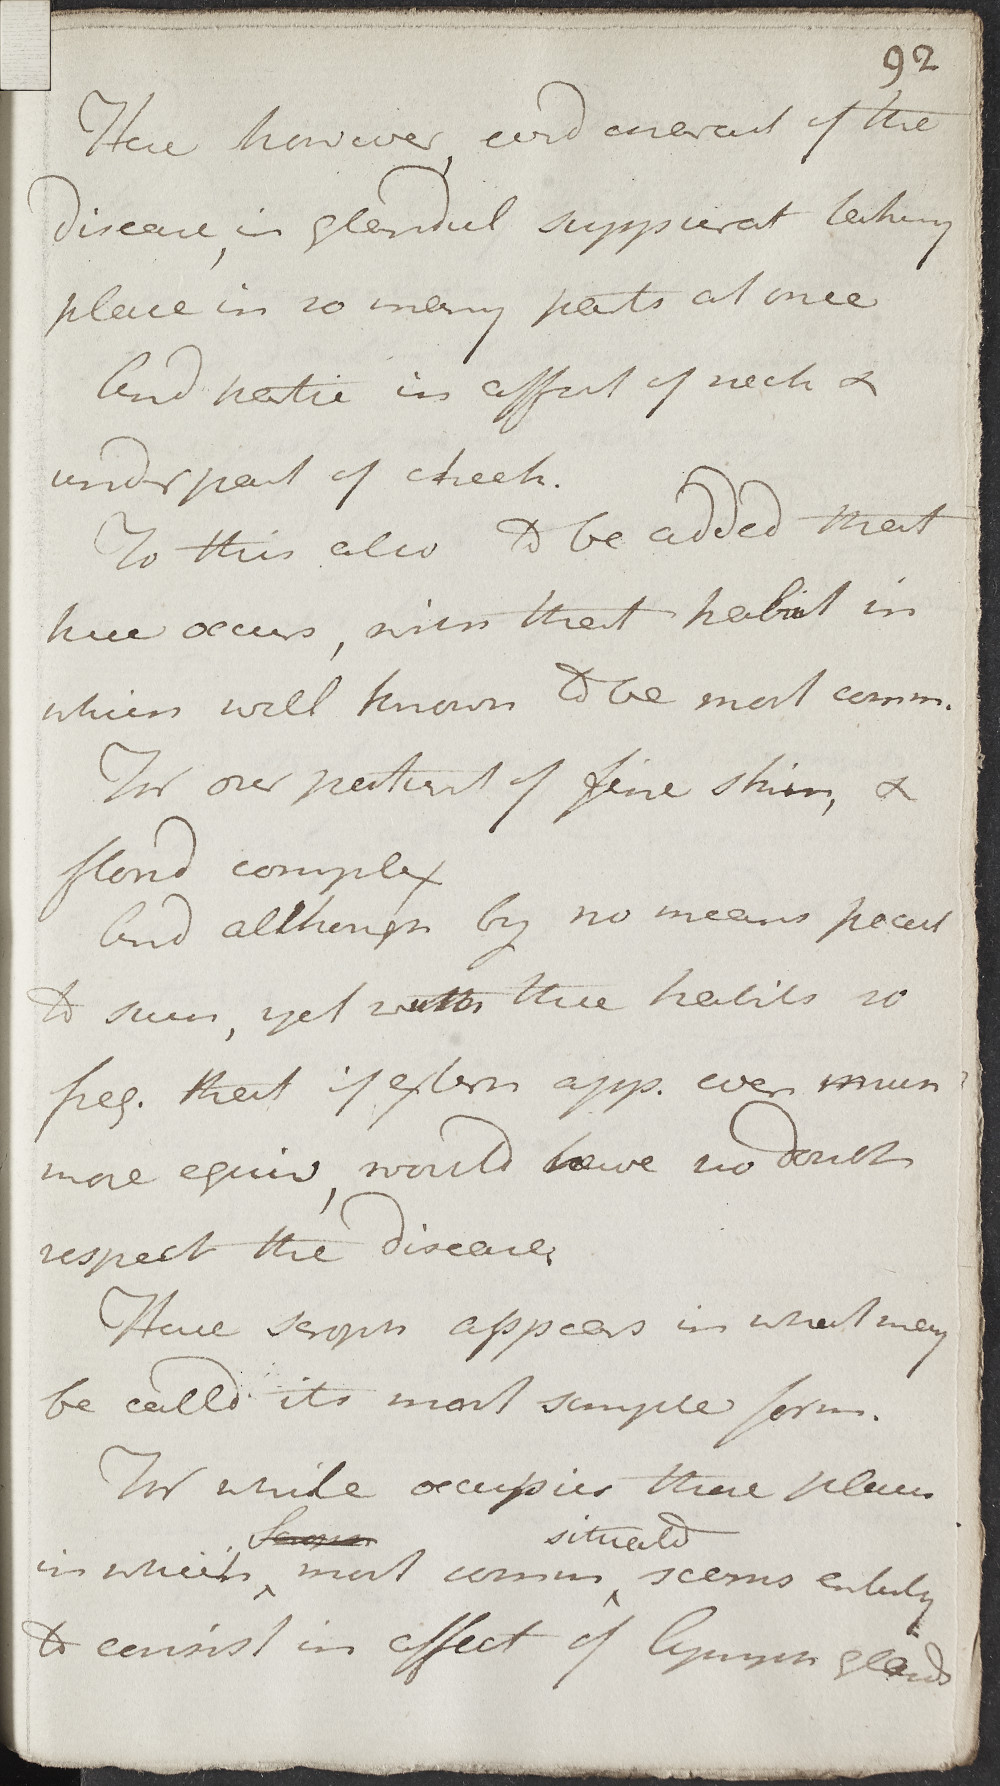 92
Here however, evid caneract of the
disease, in glandul suppurat taking
place in so many parts at once
And partic in affect of neck &
under part of cheek.
To this also to be added that
here occurs, with that habit in
which well known to be most comm.
For our patient of fine skin, &
florid complex
And although by no means pecul
to such, yet with these habits so
freq. that if extern app. even much
more equiv, would have no doubt
respect the disease.
Here scroph appears in what may
be calld its most simple form.
For while occupies those places
Scroph situatd
in which most comm, seems entirely
to consist in affect of lymph glands